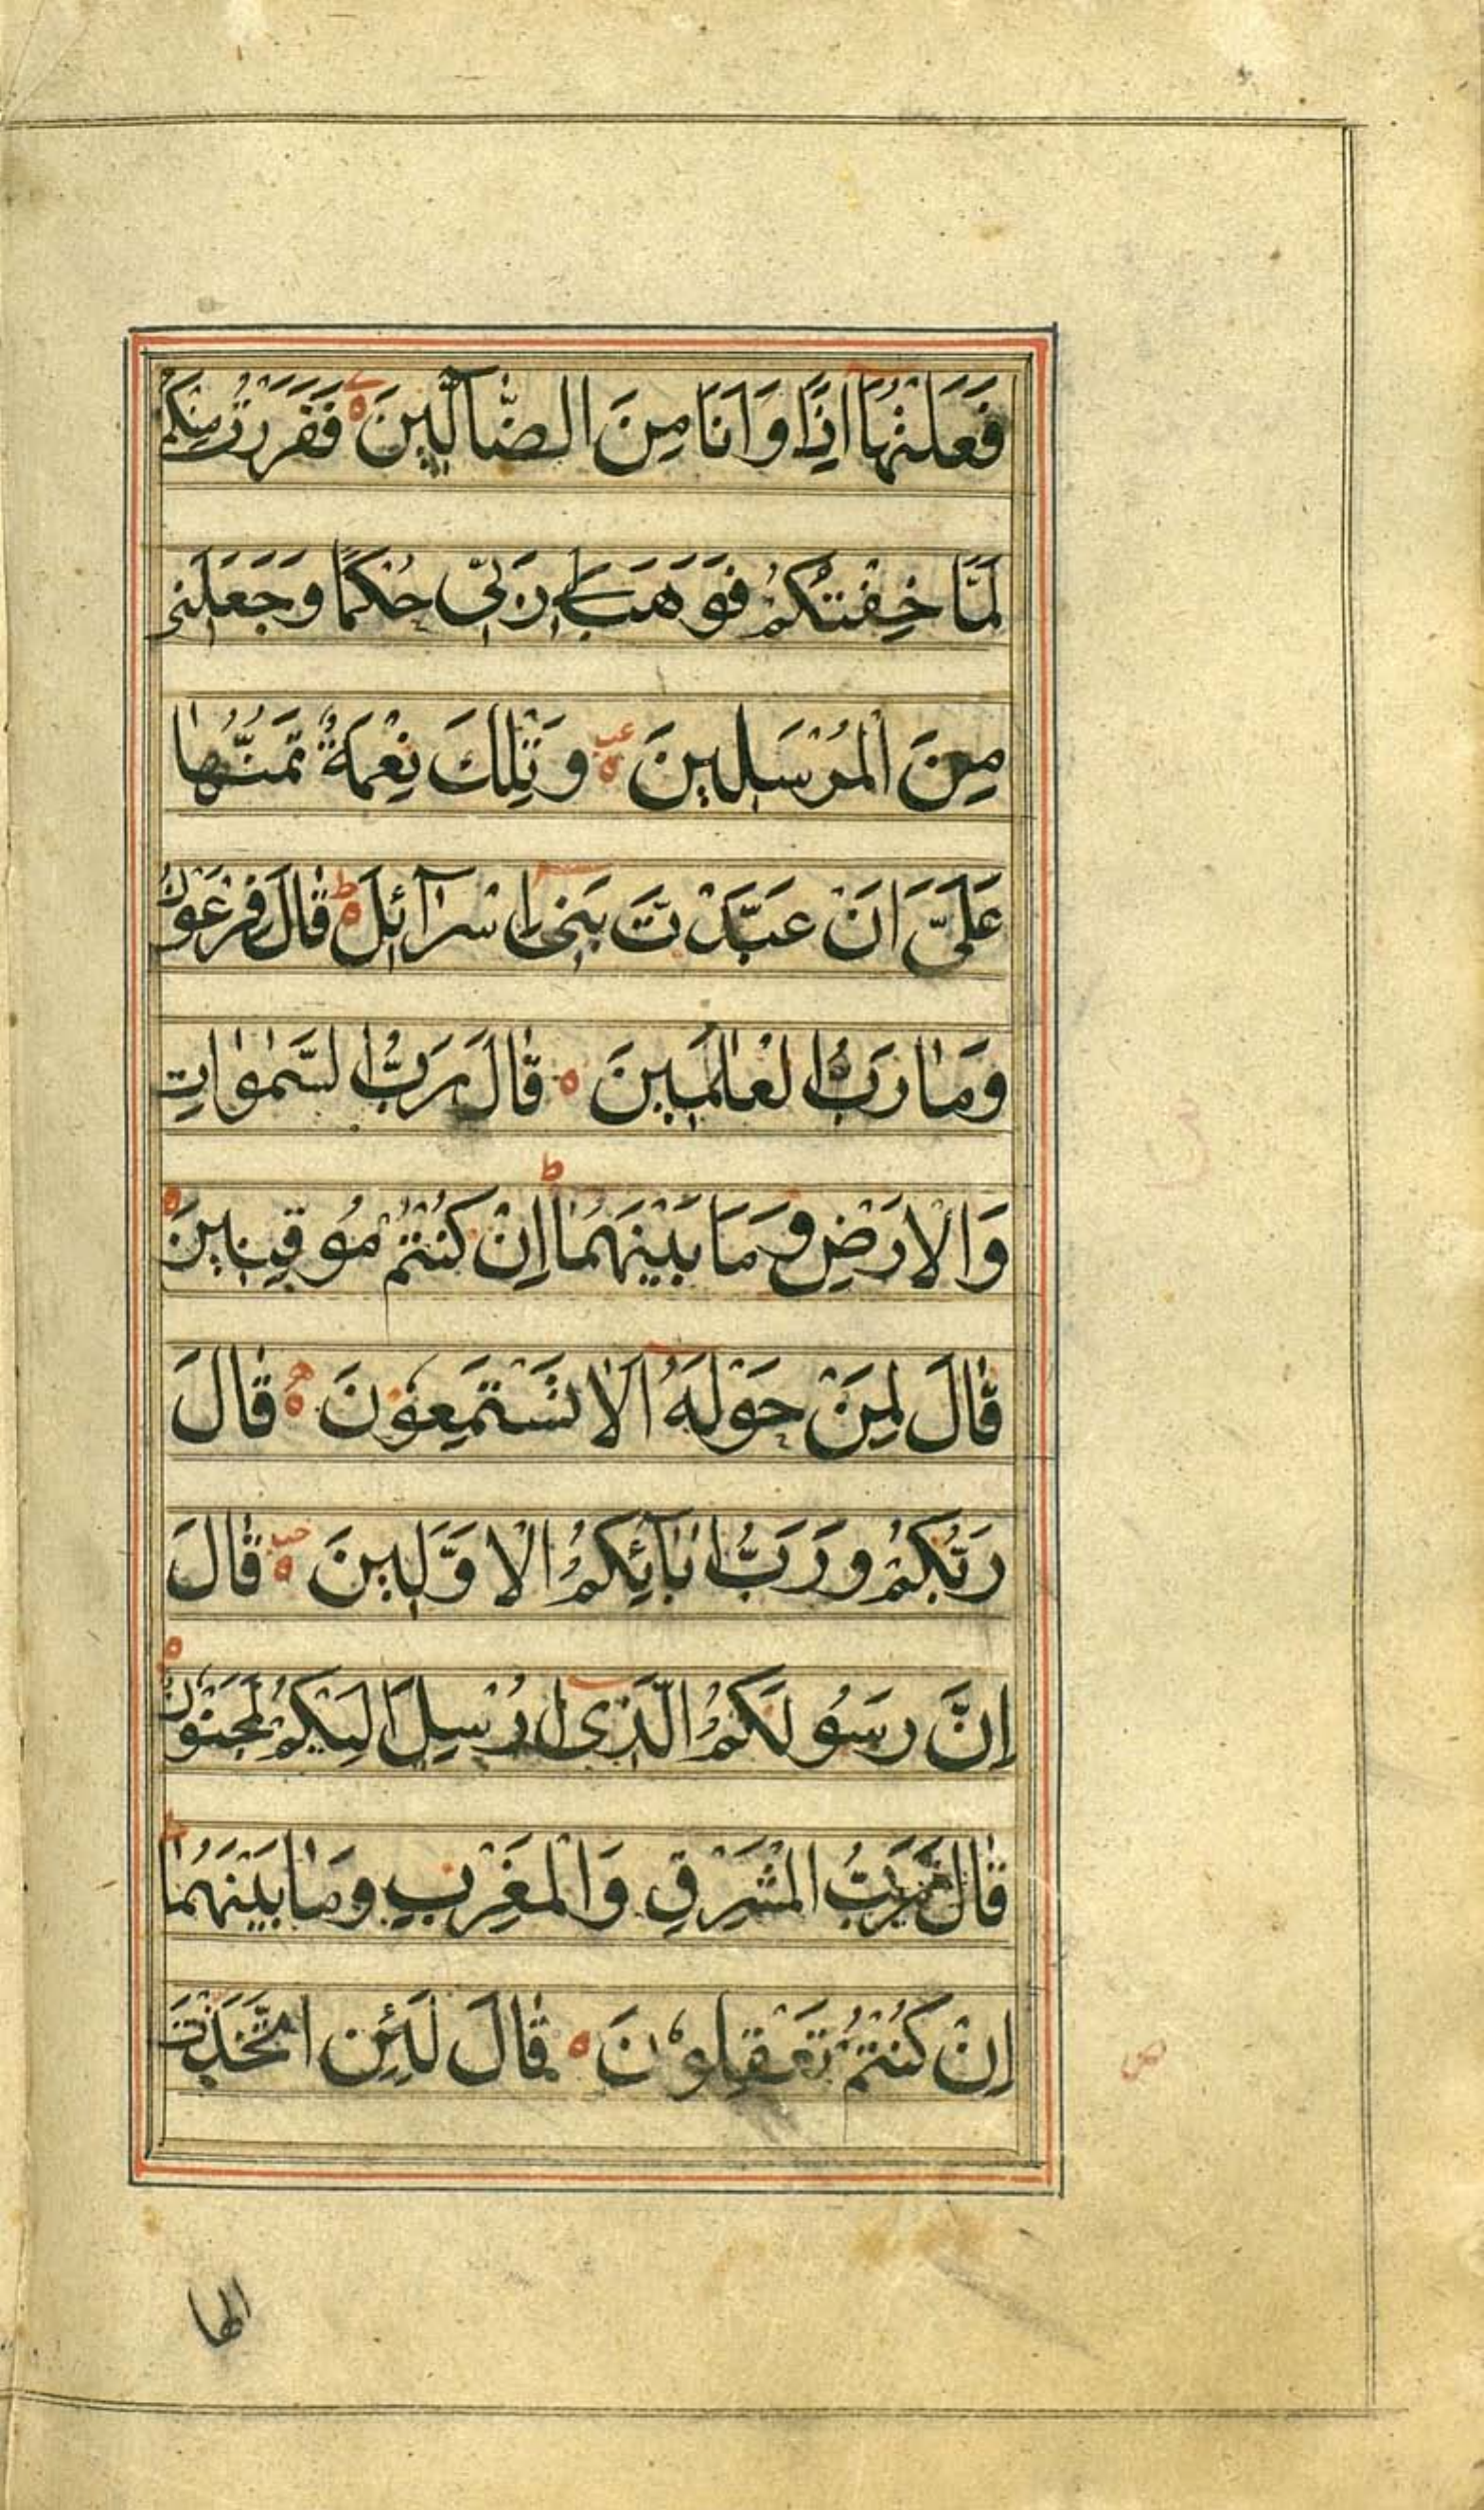 فَعَلْتُهَآ اِذًا وَاَنَا مِنَ الضَّآلِّينَ ہ فَفَرَرْتُ مِنْكُمْ
لَمَّا خِفْتُكُمْ فَوَهَبَ لِى رَبِّى حُكْمًا وَجَعَلَنِى
مِنَ الْمُرْسَلِينَ ہ وَتِلْكَ نِعْمَةٌ تَمُنُّهَا
عَلَىَّ اَنْ عَبَّدْتَ بَنِىٓ اِسْرَآئِلَ ہ ط قَالَ فِرْعَوْنُ
وَمَا رَبُّ الْعٰلَمِينَ ہ قَالَ رَبُّ السَّمٰوٰاتِ
وَالْاَرْضِ وَمَا بَيْنَهُمَا ط اِنْ كُنْتُمْ مُوقِنِينَ ہ
قَالَ لِمَنْ حَوْلَهُٓ اَلَا تَسْتَمِعُونَ ہ قَالَ
رَبُّكُمْ وَرَبُّ اٰبَآئِكُمُ الْاَوَّلِينَ ہ قَالَ
اِنَّ رَسُولَكُمُ الَّذِىٓ اُرْسِلَ اِلَيْكُمْ لَمَجْنُونٌ ہ
قَالَ رَبُّ الْمَشْرِقِ وَالْمَغْرِبِ وَمَا بَيْنَهُمَا ط
اِنْ كُنْتُمْ تَعْقِلُونَ ہ قَالَ لَئِنِ اتَّخَذْتَ
الها